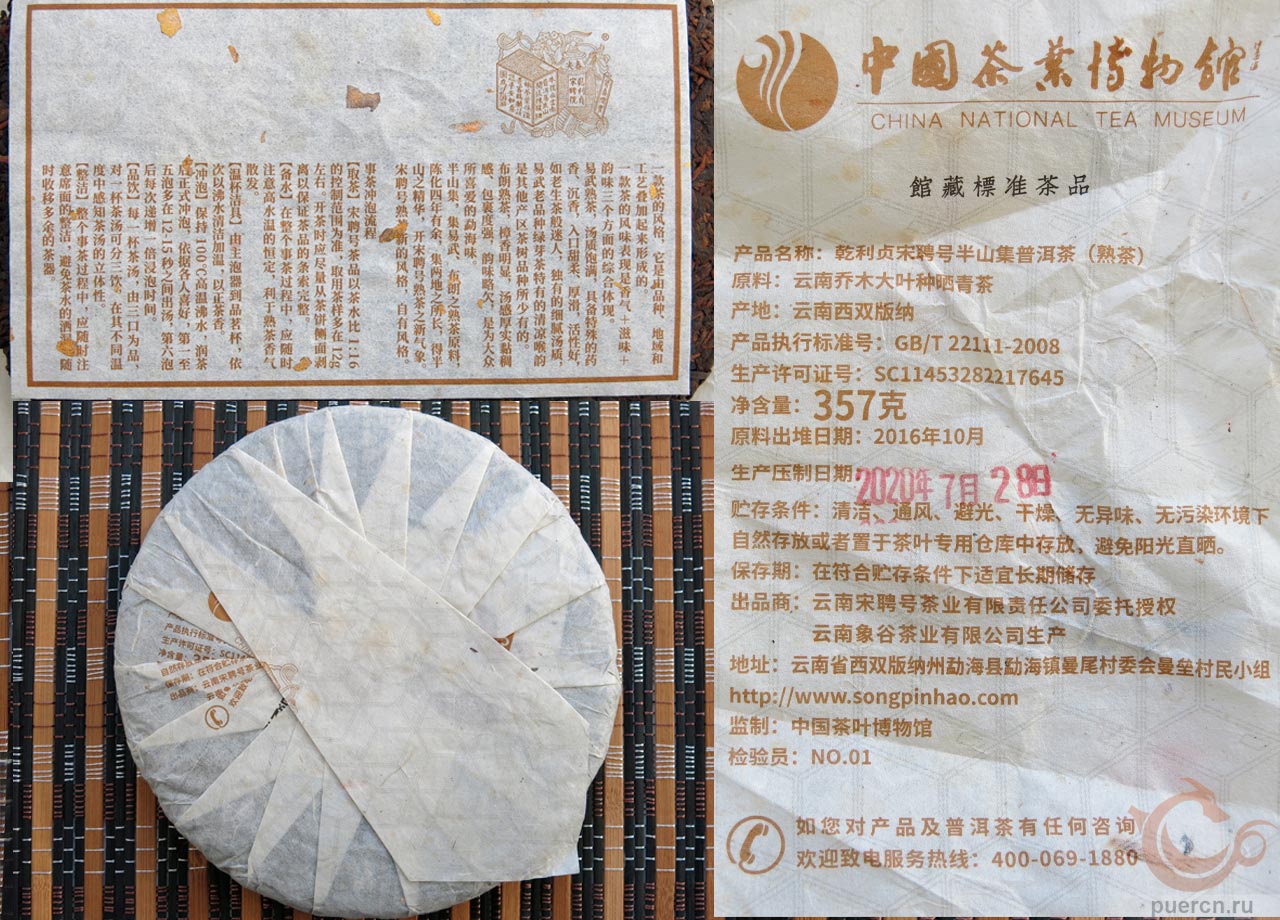 一款茶的风格，它是由品种、地域和
工艺叠加起来形成的。
一款茶的风味表现是香气＋滋味＋
韵味三个方面的综合体现。
易武熟茶，汤质饱满，具备特殊的药
香、沉香，入口甜柔、厚滑，活性好，
如老生茶般迷人，独有的细腻汤质，
易武老品种绿芽茶特有的清凉喉韵
是其他产区茶树品种所少有的。
布朗熟茶，樟香明显，汤感厚实黏稠
感、包裹度强，韵味略欠，是为大众
所喜爱的勐海味。
半山集，集易武、布朗之熟茶原料，
陈化四年有余，集两地之所长，得半
山之精华，开宋聘号熟茶之新气象。
宋聘号熟茶新的风格，自有风格。
事茶冲泡流程
【取茶】宋聘号茶品以茶水比 1:16
的控制范围为准，取用茶样多在 12g
左右。开茶时应尽量从茶饼侧面剥
离以保证茶品的条索完整。
【备水】在整个事茶过程中，应随时
注意高水温的恒定，利于熟茶香气
散发。
【温杯洁具】由主泡器到品茗杯，依
次以沸水浇洁加温，以正茶香。
【冲泡】保持 100℃高温沸水，润茶
后正式冲泡，依据各人喜好，第一至
五泡多在12-15秒之间出汤，第六泡
后每次递增一倍浸泡时间。
【品饮】每一杯茶汤，由三口为品，
对一杯茶汤可分三饮，在其不同温
度中感知茶汤的立体性。
【整洁】整个事茶过程中，应随时注
意席面的整洁，避免茶水的洒漏，随
时收移多余的茶器。
产品执行标准
生产许可证号：SC11
净含量：
自然存放或
保存期：在符合贮存条
出品商：云南宋聘号茶
中國茶葉博物館
CHINA NATIONAL TEA MUSEUM
館藏標准茶品
产品名称：乾利贞宋聘号半山集普洱茶（熟茶）
原料：云南乔木大叶种晒青茶
产地：云南西双版纳
产品执行标准号：GB/T 22111-2008
生产许可证号：SC11453282217645
净含量：357克
原料出堆日期：2016年10月
生产压制日期：2020年 7月 28日
贮存条件：清洁、通风、避光、干燥、无异味、无污染环境下
自然存放或者置于茶叶专用仓库中存放，避免阳光直晒。
保存期：在符合贮存条件下适宜长期储存
出品商：云南宋聘号茶业有限责任公司委托授权
云南象谷茶业有限公司生产
地址：云南省西双版纳州勐海县勐海镇曼尾村委会曼垒村民小组
http://www.songpinhao.com
监制：中国茶叶博物馆
检验员：NO.01
如您对产品及普洱茶有任何咨询
欢迎致电服务热线：400-069-1880
puercn.ru